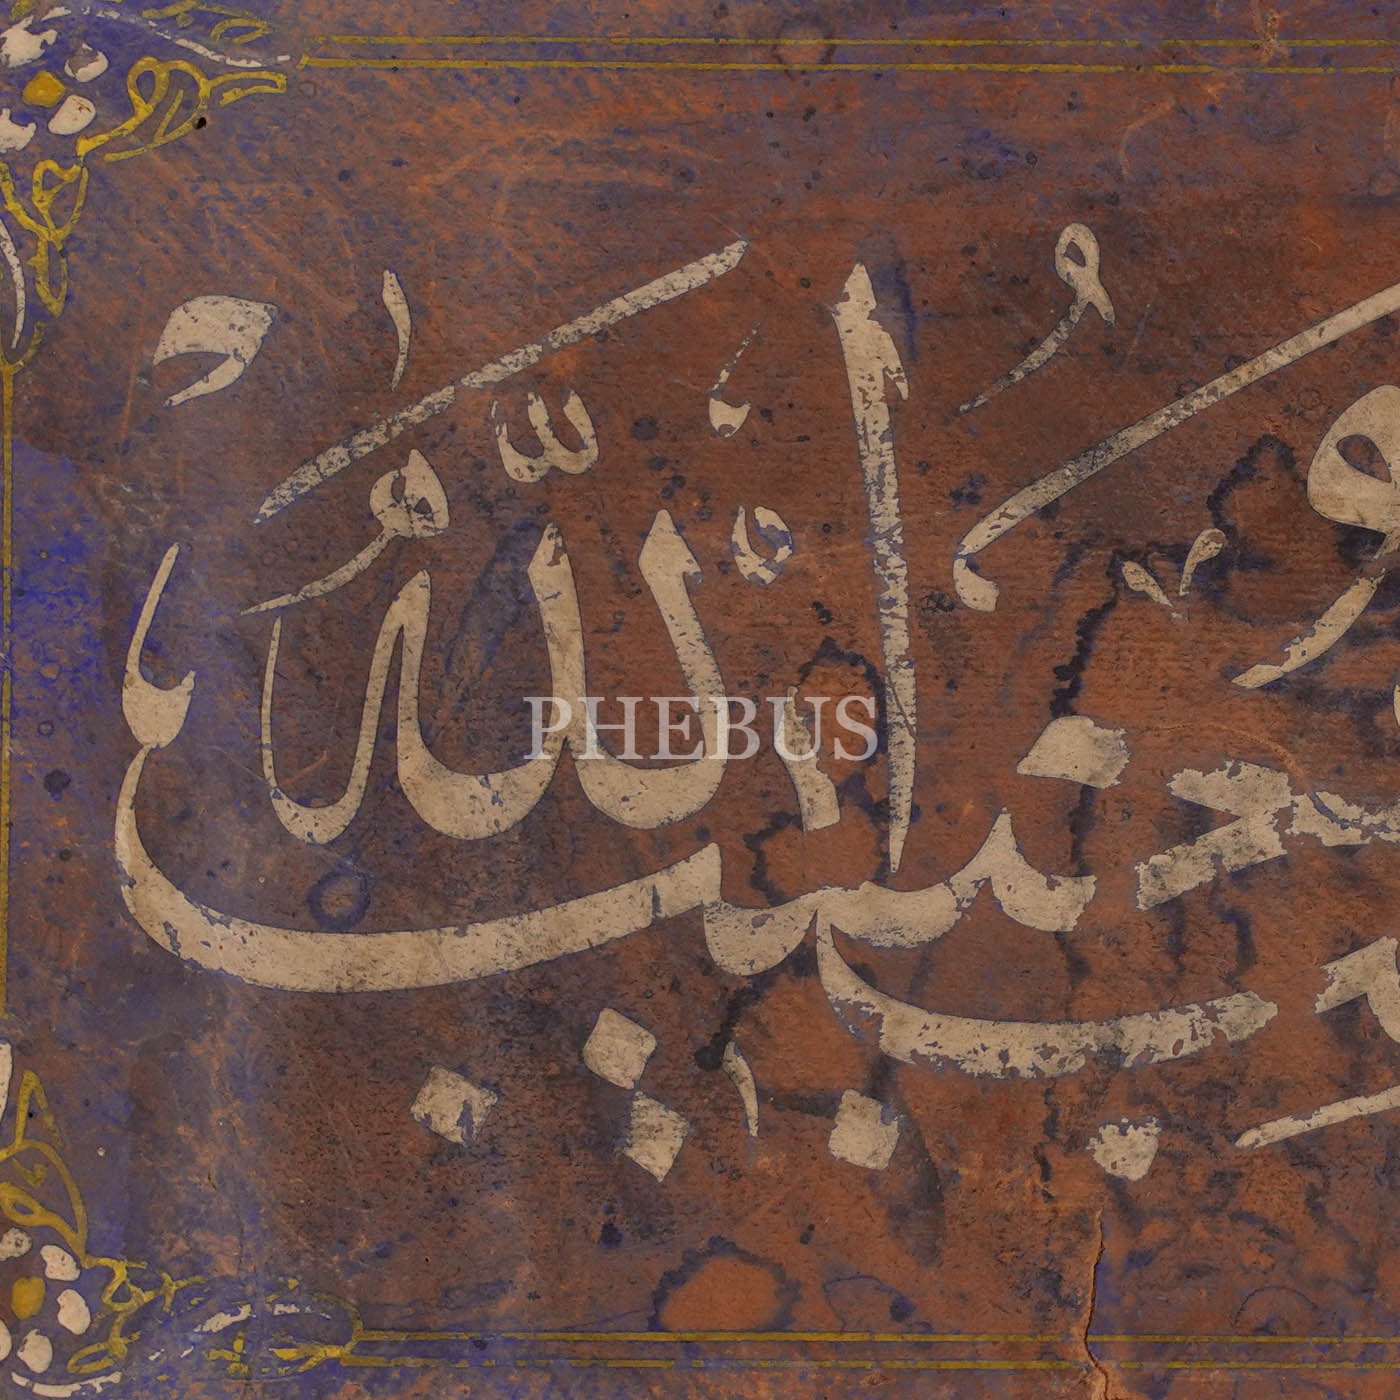 حبيب الله
PHEBUS